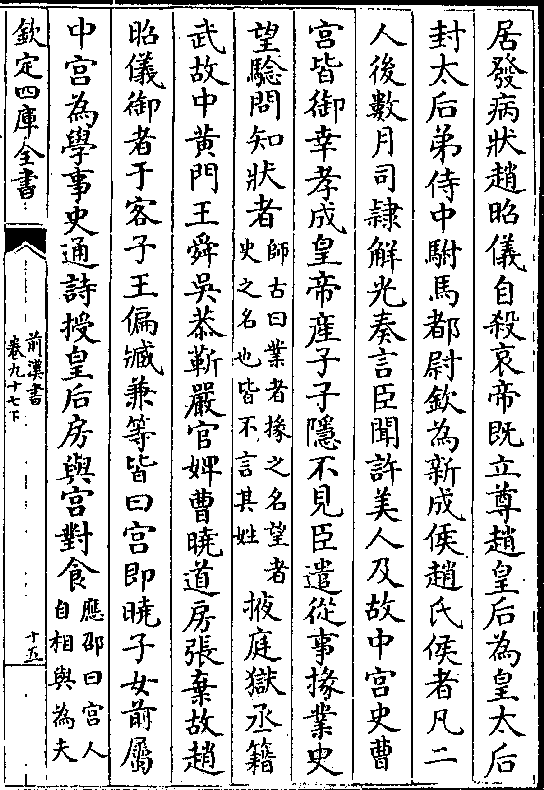 居發病狀趙昭儀自殺哀帝既立尊趙皇后為皇太后
封太后弟侍中駙馬都尉欽為新成侯趙氏侯者凡二
人後數月司隸解光奏言臣聞許美人及故中宮史曹
宮皆御幸孝成皇帝産子子隱不見臣遣從事掾業史
望驗問知狀者師古曰業者掾之名望者史之名也皆不言其姓掖庭獄丞籍
武故中黃門王舜吳恭靳嚴官婢曹曉道房張棄故趙
昭儀御者于客子王偏臧兼等皆曰宮即曉子女前屬
中宮為學事史通詩授皇后房與宮對食應邵曰宮人自相與為夫
欽定四庫全書
前漢書
卷九十七下
十五